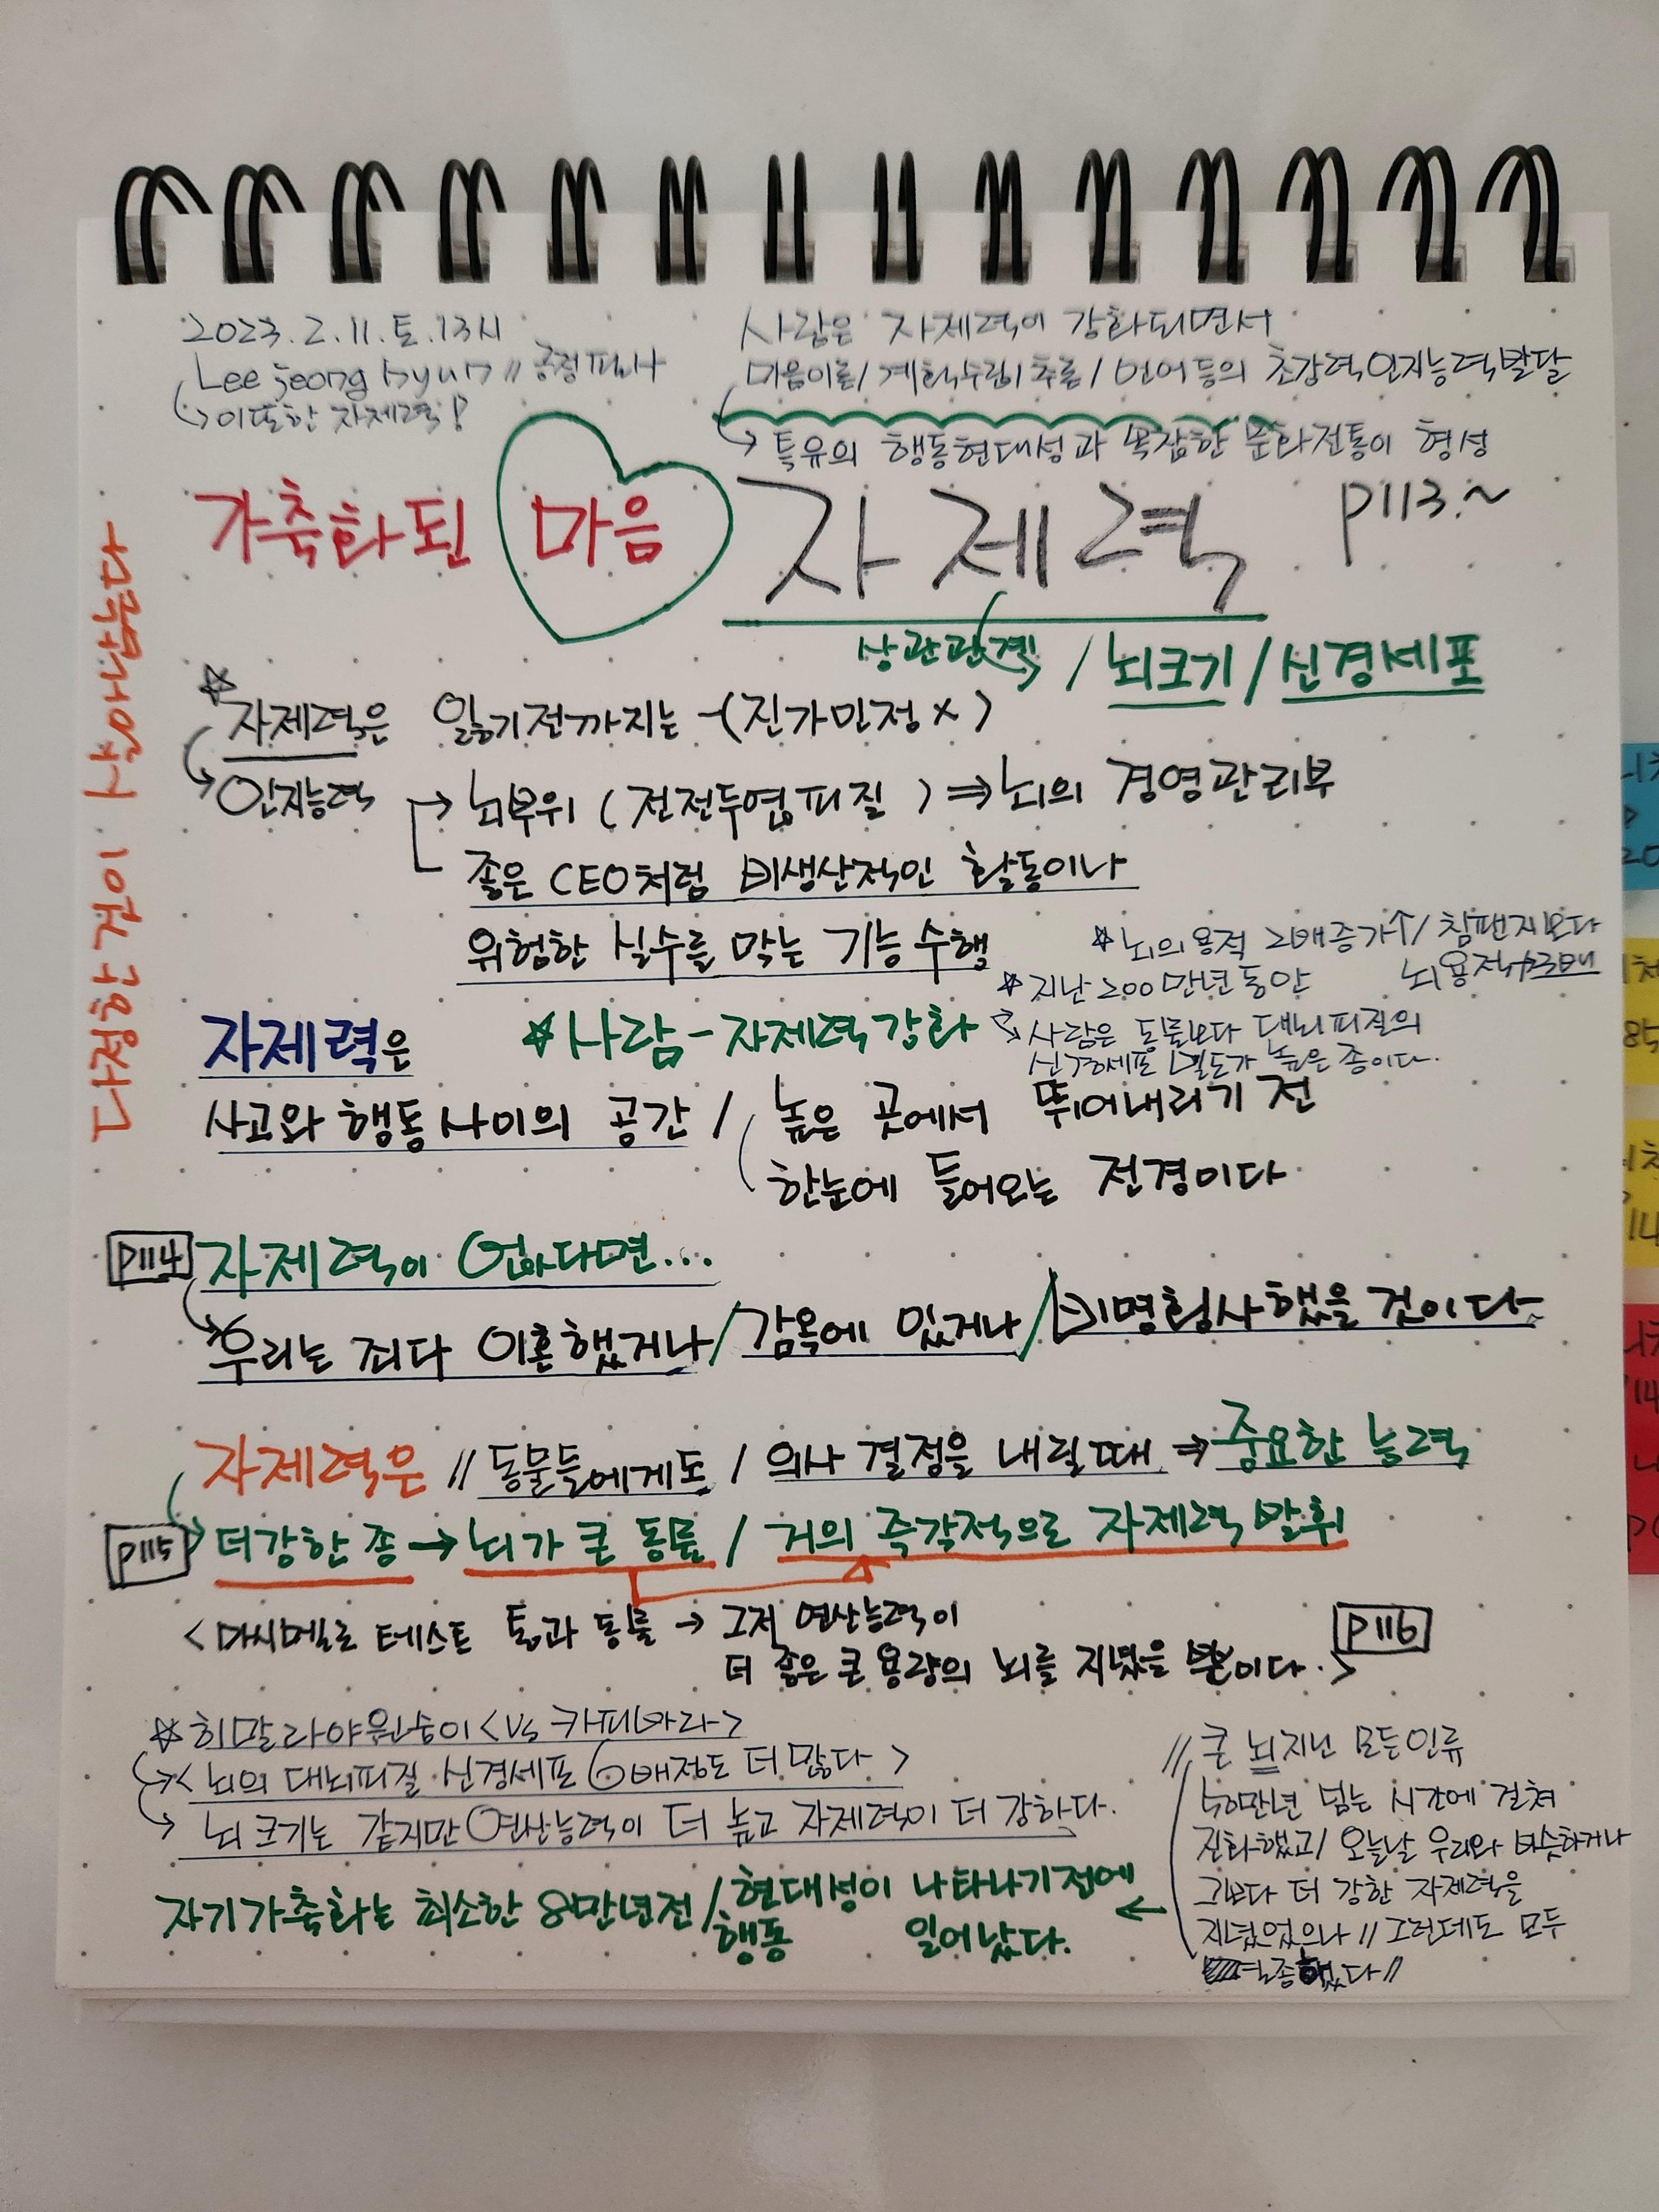 2023.2.11.토.13시
Lee jeong hyun // 긍정피사
이또한 자제력!
사람은 자제력이 강화되면서
마음이론/계획수립/추론/언어등의 초강력인지능력발달
특유의 행동현대성과 복잡한 문화전통이 형성
가축화된 마음 자제력 p113.~
다정한 것이 살아남는다
상관관계 / 뇌크기 / 신경세포
자제력은 잃기전까지는 -(진가인정 x)
인지능력 → 뇌부위 (전전두엽피질) ⇒ 뇌의 경영관리부
좋은 CEO처럼 비생산적인 활동이나
위험한 실수를 막는 기능수행
☆뇌의용적 2배증가↑/ 침팬지보다
뇌용적
☆지난 200만년동안
자제력은 ☆사람-자제력강화
사람은 동물보다 대뇌피질의
신경세포 밀도가 높은 종이다.
사고와 행동사이의 공간 / 높은 곳에서 뛰어내리기 전
한눈에 들어오는 전경이다
p114 자제력이 없다면...
우리는 죄다 이혼했거나/감옥에 있거나/비명횡사했을 것이다.
자제력은 // 동물들에게도 / 의사 결정을 내릴때 ⇒ 중요한 능력
p115 더강한 종 → 뇌가 큰 동물 / 거의 즉각적으로 자제력 발휘
<마시멜로 테스트 통과 동물 → 그저 연산능력이
더 좋은 큰 용량의 뇌를 지녔을 뿐이다.>
p116
☆히말라야원숭이<vs 카피바라>
<뇌의 대뇌피질 신경세포 6배정도 더많다>
뇌 크기는 같지만 연산능력이 더 높고 자제력이 더 강하다.
자기가축화는 최소한 8만년전/현대성이 나타나기전에
행동 일어났다.
// 큰 뇌지닌 모든인류
50만년 넘는 시간에 걸쳐
진화했고/ 오늘날 우리와 비슷하거나
그보다 더 강한 자제력을
지녔었으나 // 그런데도 모두
멸종했다//